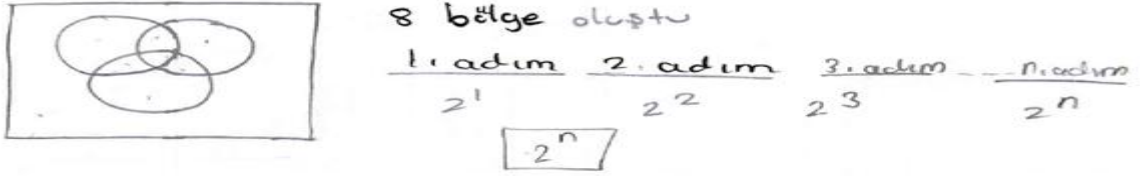 8 bölge oluştu
1. adım 2. adım 3. adım --- n. adım
2¹ 2² 2³ 2ⁿ
2ⁿ